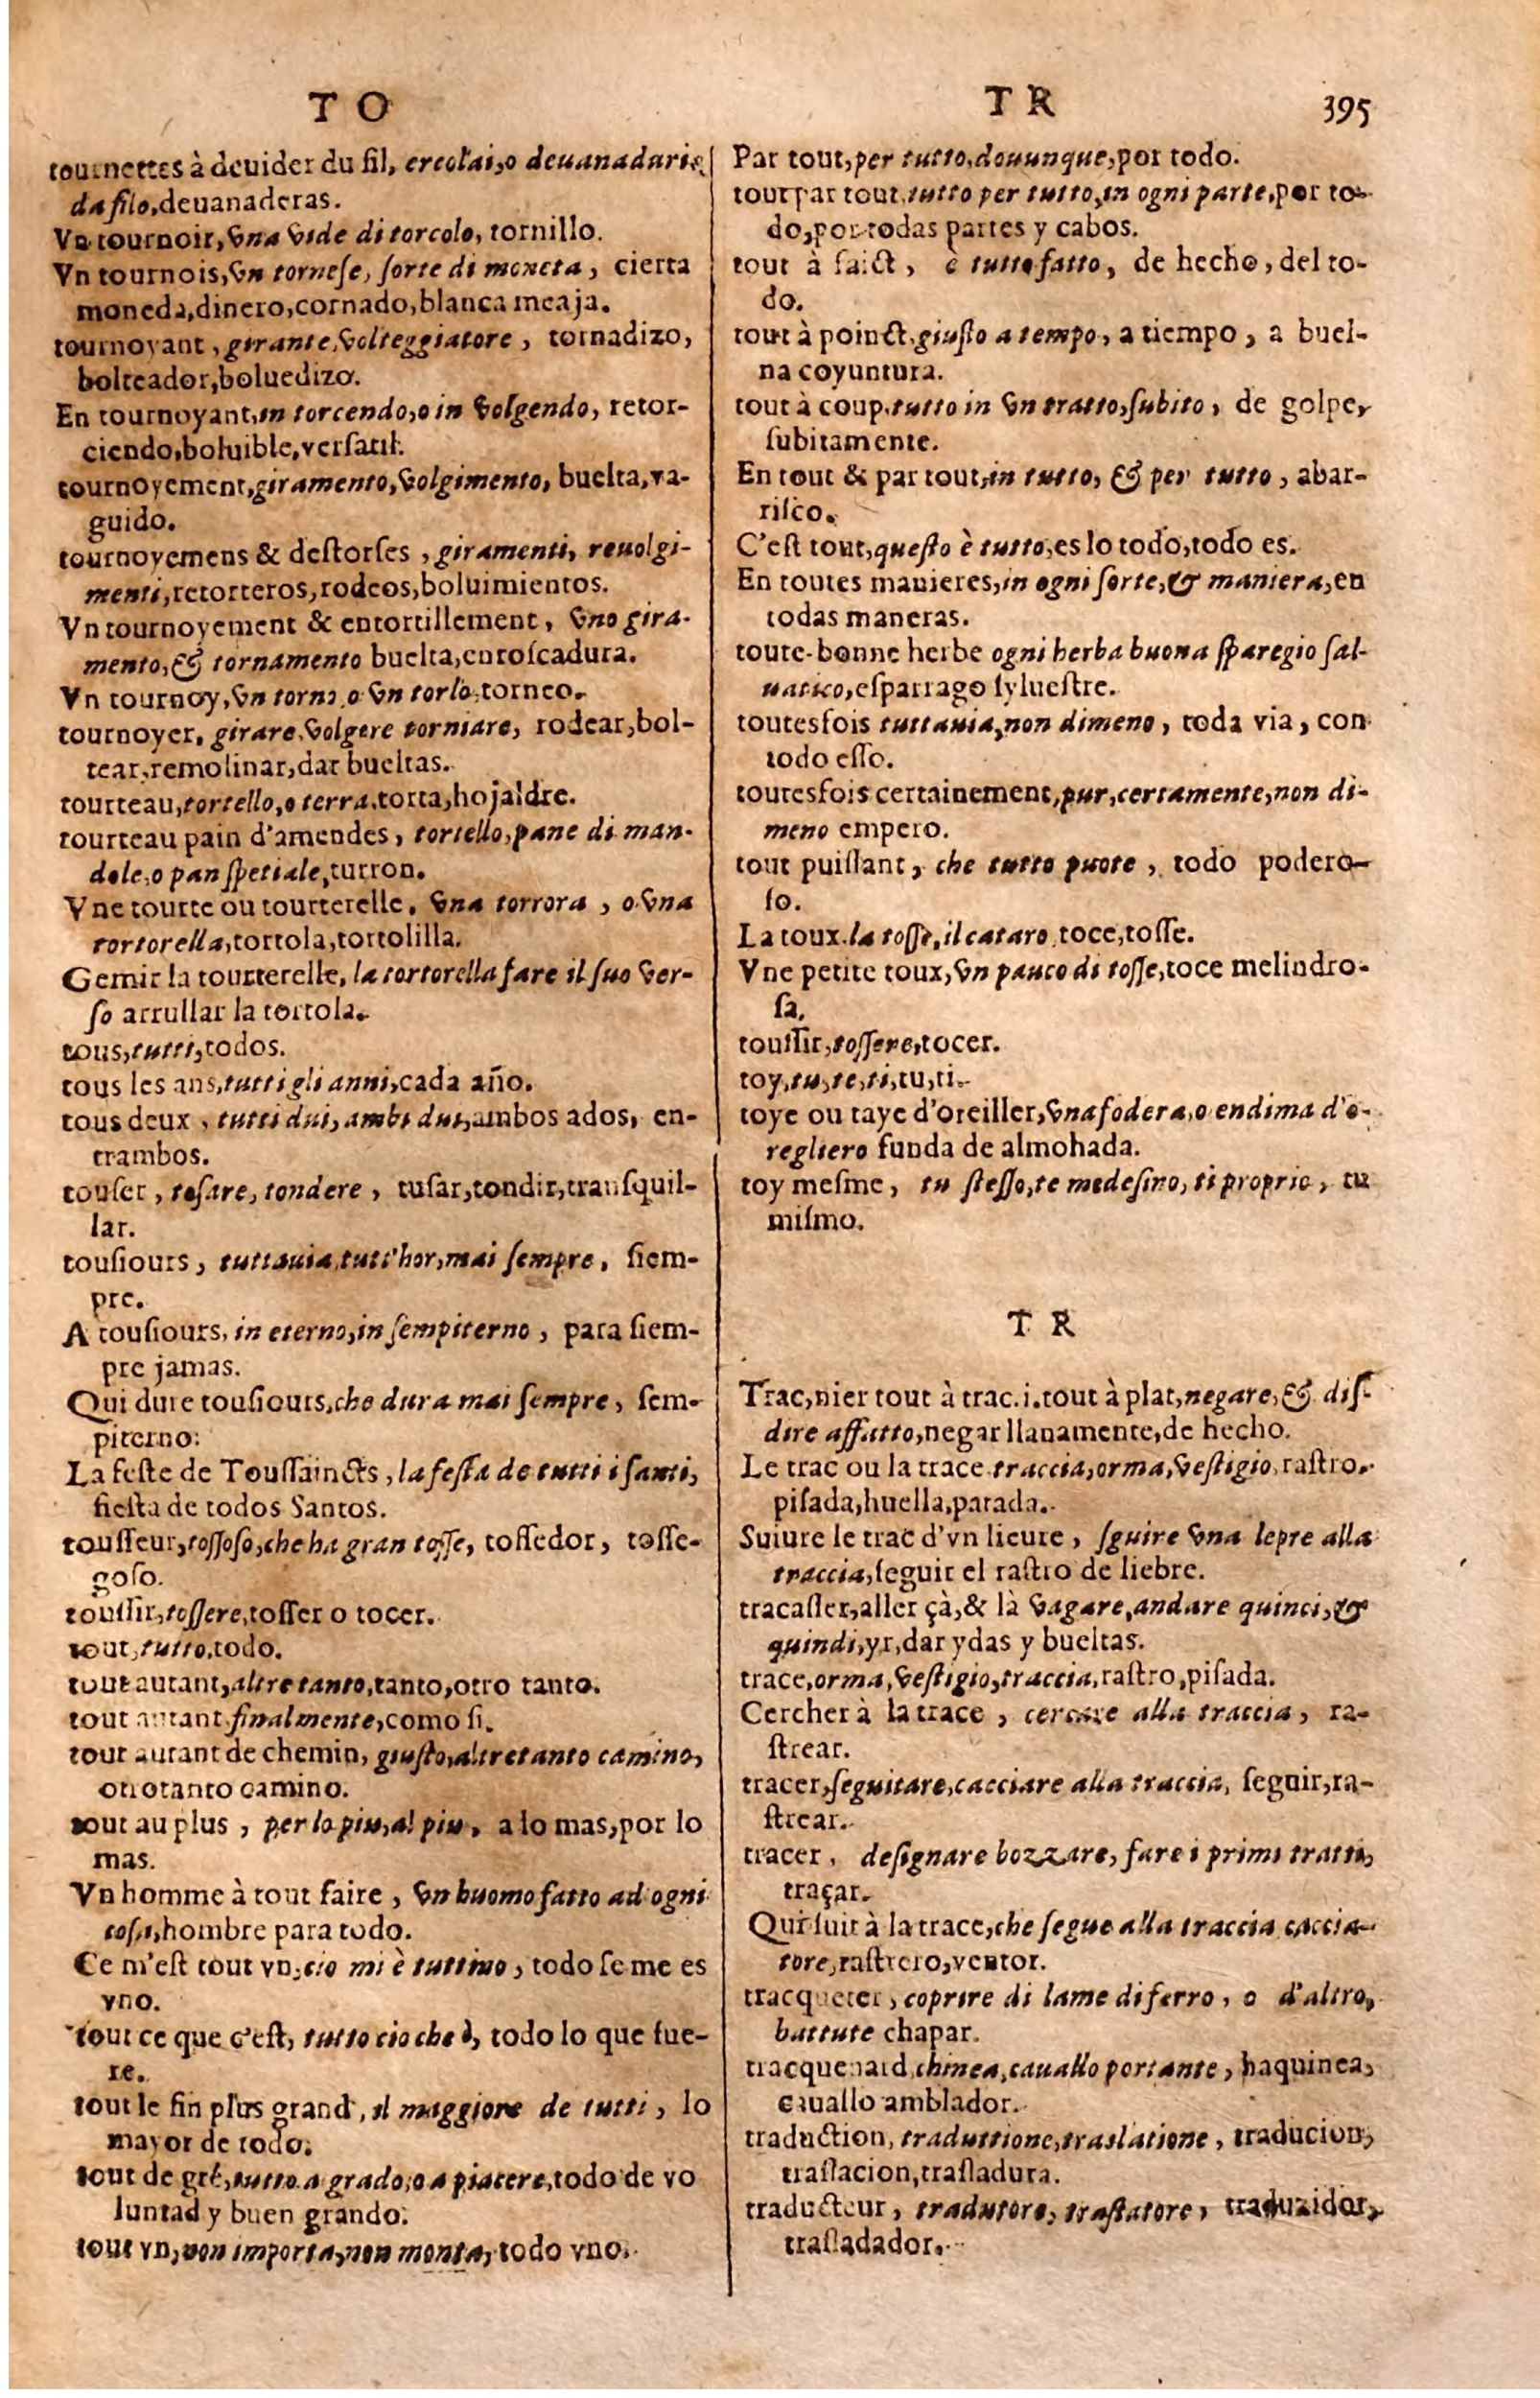 TO
tournettes à deuider du fil, ercolai, o deuanadurie
da filo, deuanaderas.
Vn tournoir, vna vide di torcolo, tornillo.
Vn tournois, vn tornese, sorte di moneta, cierta
moneda, dinero, cornado, blanca meaja.
tournoyant, girante, volteggiatore, tornadizo,
bolteador, boluedizo.
En tournoyant, in torcendo, o in volgendo, retor-
ciendo, boluible, versatil.
tournoyement, giramento, volgimento, buelta, va-
guido.
tournoyemens & destorses, giramenti, reuolgi-
menti, retorteros, rodeos, boluimientos.
Vn tournoyement & entortillement, vno gira-
mento, & tornamento buelta, enroscadura.
Vn tournoy, vn torno, o vn torlo, torneo.
tournoyer, girare, volgere torniare, rodear, bol-
tear, remolinar, dar bueltas.
tourteau, tortello, o terra, torta, hojaldre.
tourteau pain d'amendes, tortello, pane di man-
dole, o pan spetiale, turron.
Vne tourte ou tourterelle, vna torrora, o vna
tortorella, tortola, tortolilla.
Gemir la tourterelle, la tortorella fare il suo ver-
so arrullar la tortola.
tous, tutti, todos.
tous les ans, tutti gli anni, cada año.
tous deux, tutti dui, ambi dui, ambos ados, en-
trambos.
touser, tosare, tondere, tusar, tondir, transquil-
lar.
tousiours, tuttauia, tutt'hor, mai sempre, siem-
pre.
A tousiours, in eterno, in sempiterno, para siem-
pre jamas.
Qui dure tousiours, che dura mai sempre, sem-
piterno:
La feste de Toussaincts, la festa de tutti i santi,
fiesta de todos Santos.
tousseur, tossoso, che ha gran tosse, tossedor, tosse-
goso.
toussir, tossere, tosser o tocer.
tout, tutto, todo.
tout autant, altretanto, tanto, otro tanto.
tout autant finalmente, como si.
tout autant de chemin, giusto, altretanto camino,
otrotanto camino.
tout au plus, per lo piu, al piu, a lo mas, por lo
mas.
Vn homme à tout faire, vn huomo fatto ad ogni
cosa, hombre para todo.
Ce m'est tout vn, cio mi è tuttino, todo se me es
vno.
tout ce que c'est, tutto cio che è, todo lo que fue-
re.
tout le fin plus grand, il maggiore de tutti, lo
mayor de todo.
tout de gré, tutto a grado, o a piacere, todo de vo
luntad y buen grando.
tout vn, non importa, non monta, todo vno.
TR 395
Par tout, per tutto, douunque, por todo.
tout par tout, tutto per tutto, in ogni parte, por to-
do, por todas partes y cabos.
tout à faict, è tutto fatto, de hecho, del to-
do.
tout à poinct, giusto a tempo, a tiempo, a buel-
na coyuntura.
tout à coup, tutto in vn tratto, subito, de golpe,
subitamente.
En tout & par tout, in tutto, & per tutto, abar-
risco.
C'est tout, questo è tutto, es lo todo, todo es.
En toutes manieres, in ogni sorte, & maniera, en
todas maneras.
toute-bonne herbe ogni herba buona sparegio sal-
uatico, esparrago sylvestre.
toutesfois tuttauia, non dimeno, toda via, con
todo esso.
toutesfois certainement, pur, certamente, non di-
meno empero.
tout puissant, che tutto puote, todo podero-
so.
La toux. la tosse, il cataro, toce, tosse.
Vne petite toux, vn pauco di tosse, toce melindro-
sa.
toussir, tossere, tocer.
toy, tu, te, ti, tu, ti.
toye ou taye d'oreiller, vna fodera, o endima d'o-
regliero funda de almohada.
toy mesme, tu stesso, te medesino, ti proprio, tu
mismo.
TR
Trac, nier tout à trac. i. tout à plat, negare, & dis-
dire affatto, negar llanamente, de hecho.
Le trac ou la trace traccia, orma, vestigio, rastro,
pisada, huella, parada.
Suiure le trac d'vn lieure, sguire vna lepre alla
traccia, seguir el rastro de liebre.
tracasser, aller çà, & là vagare, andare quinci, &
quindi, yr, dar ydas y bueltas.
trace, orma, vestigio, traccia, rastro, pisada.
Cercher à la trace, cercare alla traccia, ra-
strear.
tracer, seguitare, cacciare alla traccia, seguir, ra-
strear.
tracer, designare bozzare, fare i primi tratti,
traçar.
Qui suit à la trace, che segue alla traccia caccia-
tore, rastrero, ventor.
tracqueter, coprire di lame di ferro, o d'altro,
battute chapar.
tracquenard, chinea, cauallo portante, haquinea,
cauallo amblador.
traduction, traduttione, traslatione, traducion,
traslacion, trasladura.
traducteur, tradutore, traslatore, traduzidor,
trasladador.